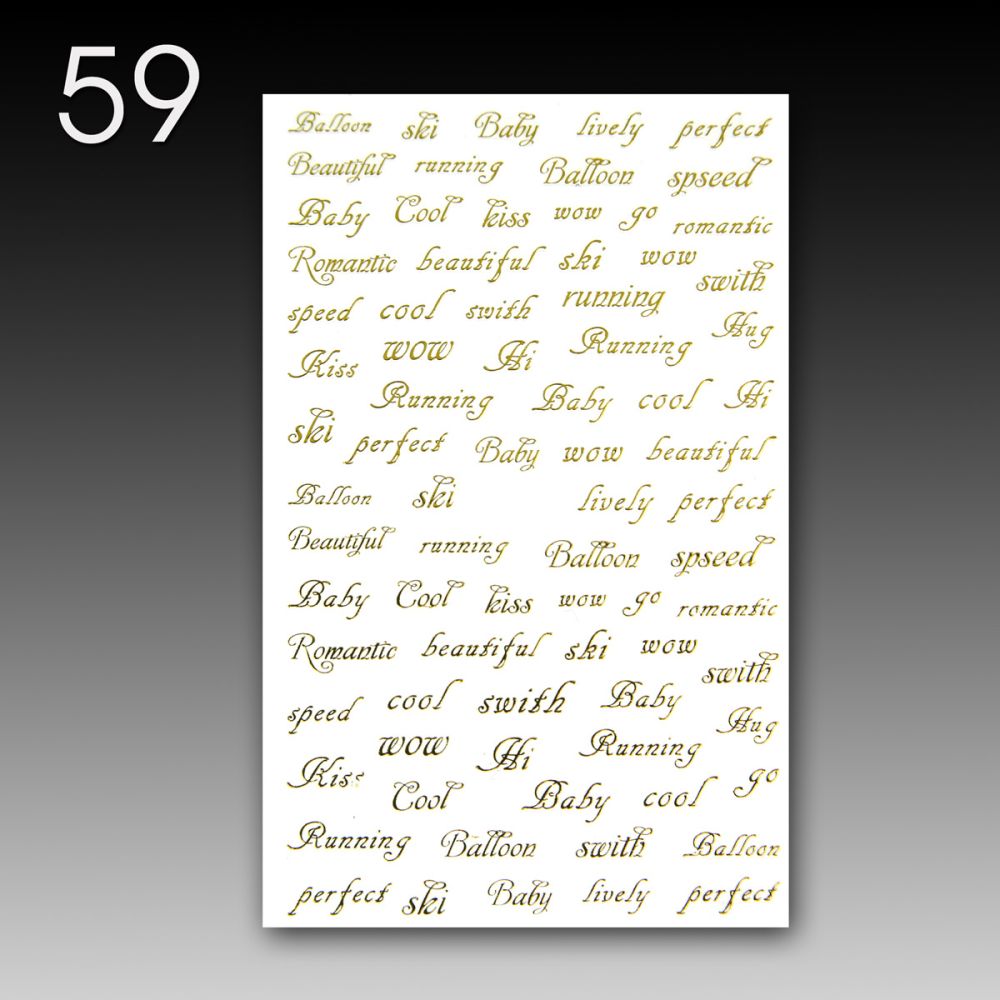 59
Balloon ski Baby lively perfect
Beautiful running Balloon spseed
Baby Cool kiss wow go romantic
Romantic beautiful ski wow swith
speed cool swith running Hug
Kiss wow Hi Running
Running Baby cool Hi
ski perfect Baby wow beautiful
Balloon ski lively perfect
Beautiful running Balloon spseed
Baby Cool kiss wow go romantic
Romantic beautiful ski wow swith
speed cool swith Baby Hug
Kiss wow Hi Running go
Cool Baby cool
Running Balloon swith Balloon
perfect ski Baby lively perfect